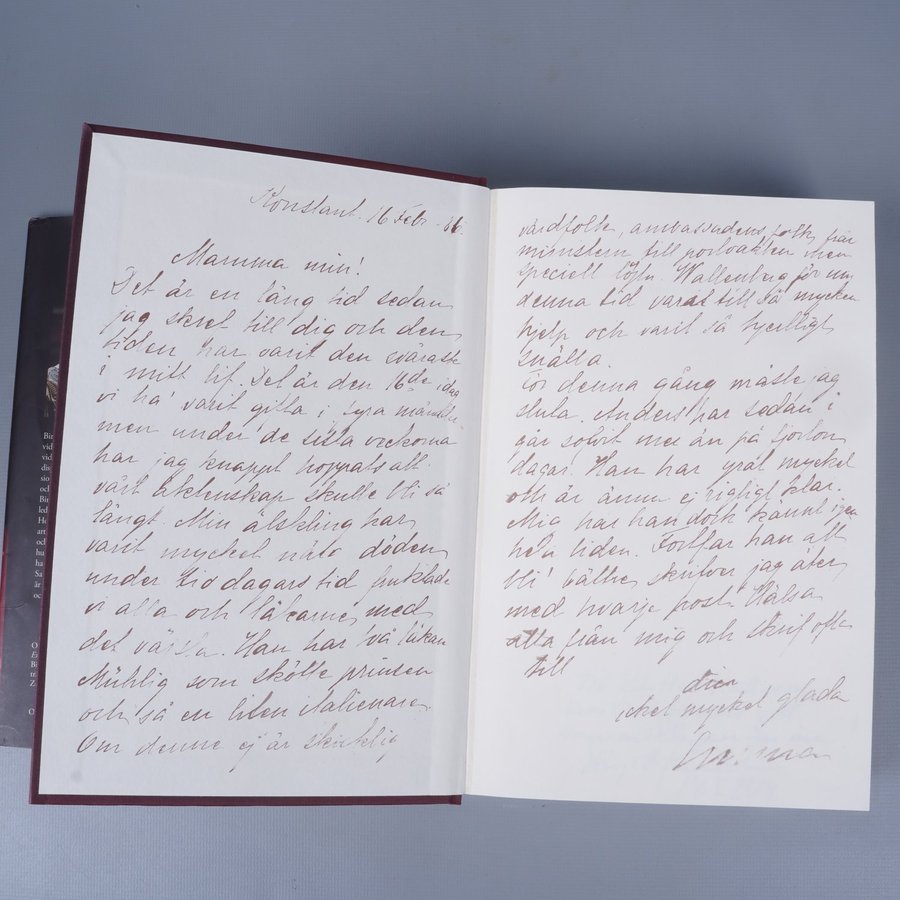 Konstant. 16 Febr. 86.
Mamma min!
Det är en lång tid sedan
jag skref till dig och den
tiden har varit den svåraste
i mitt lif. Det är den 16de idag
vi ha' varit gifta i fyra månader
men under de sista veckorna
har jag knappt hoppats att
vårt äktenskap skulle bli så
långt. Min älskling har
varit mycket nära döden
under tio dagars tid fruktade
vi alla och läkarne med
det värsta. Han har två läkare
Mühlig som skötte prinsen
och så en liten italienare.
Om denne ej är skicklig
värdfolk, ambassadens folk, från
ministern till portvakten men
speciell löjtn. Wallenberg för un
denna tid varas till så mycken
hjelp och varit så hjertligt
snälla.
För denna gång måste jag
sluta. Anders har sedan i
går sofvit mer än på fjorton
dagar. Han har yrat mycket
och är ännu ej rigtigt klar.
Mig har han dock kännt igen
hela tiden. Fortfar han att
bli' bättre skrifver jag åter
med hvarje post. Hälsa
alla från mig och skrif ofta
till
din
mycket glada